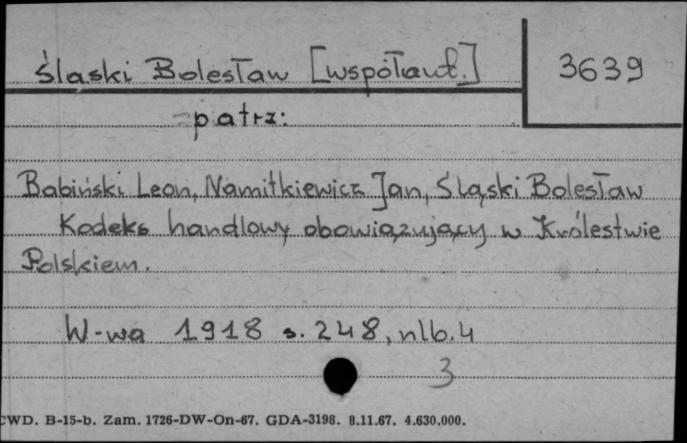 Śląski Bolesław [współaut.] 3639
patrz:
Babiński Leon, Namitkiewicz Jan, Śląski Bolesław
Kodeks handlowy obowiązujący w Królestwie
Polskiem.
W-wa 1918 s. 248, nlb. 4
3
CWD. B-15-b. Zam. 1726-DW-On-67. GDA-3198. 8.11.67. 4.630.000.